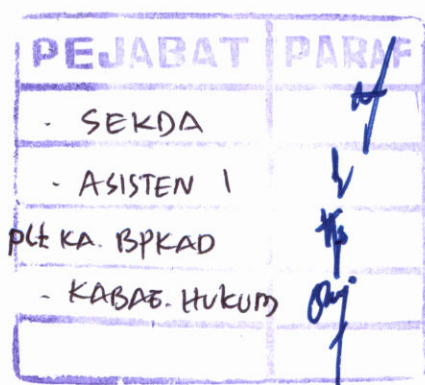 PEJABAT PARAF
- SEKDA
- ASISTEN 1
plt KA. BPKAD
- KABAG. HUKUM